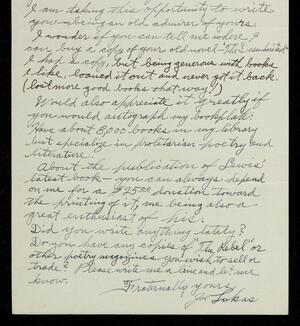 I am taking this opportunity to write
you — being an old admirer of yours.
I wonder if you can tell me where I
can buy a copy of your old novel — "The Disinherited"
I had a copy, but being generous with books
I like, loaned it out and never got it back.
(lost more good books that way!)
Would also appreciate it greatly if
you would autograph my bookplate.
Have about 8,000 books in my library
but specialize in proletarian poetry and
literature.
About the publication of Lewis'
latest book — you can always depend
on me for a $25.00 donation toward
the printing of it, me being also a
great enthusiast of his.
Did you write anything lately?
Do you have any copies of "The Rebel" or
other poetry magazines you wish to sell or
trade? Please write me a line and let me
know.
Fraternally yours,
Joe Lukas